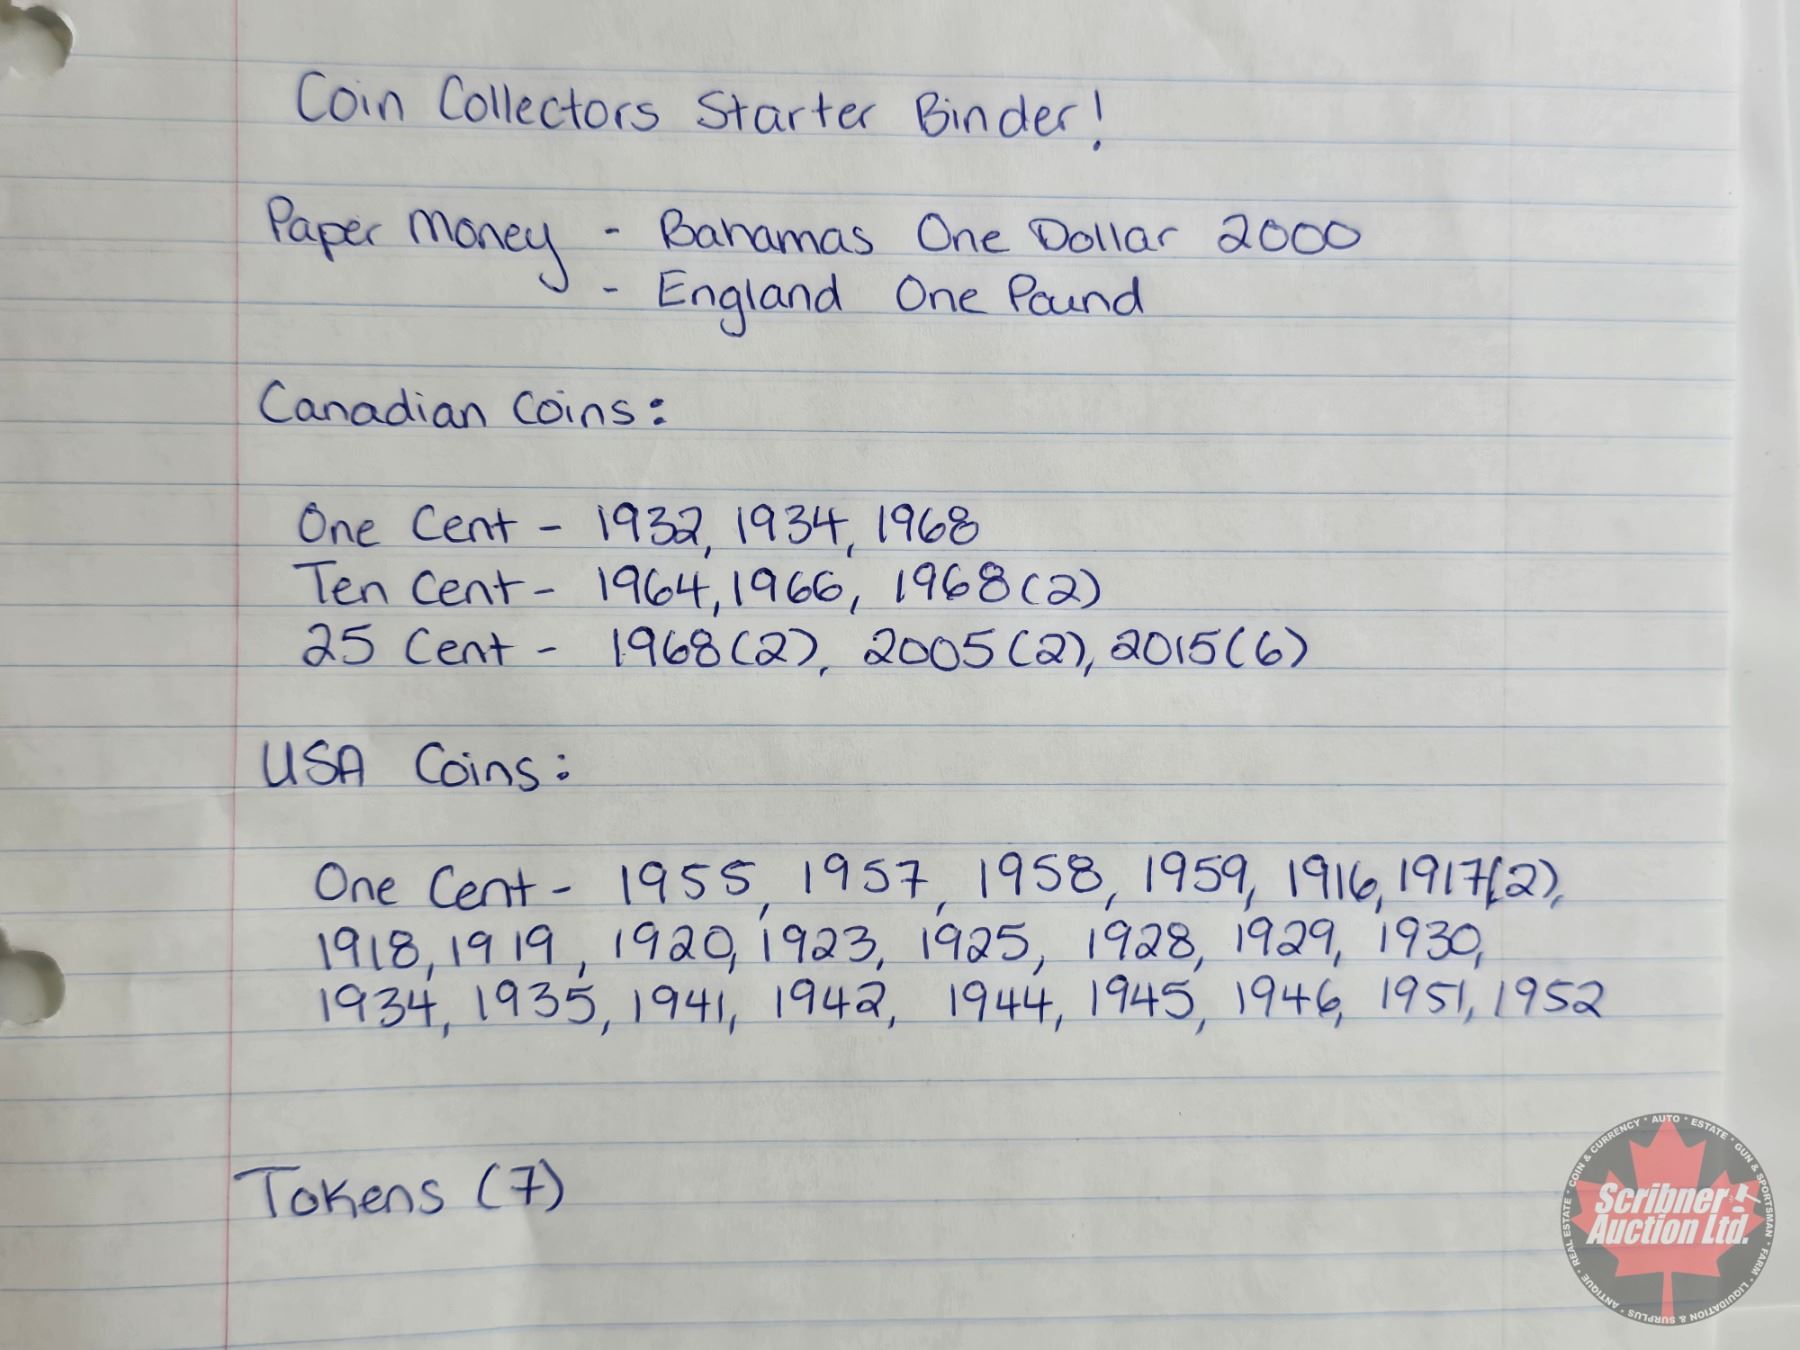 Coin Collectors Starter Binder!
Paper Money - Bahamas One Dollar 2000
- England One Pound
Canadian Coins:
One Cent - 1932, 1934, 1968
Ten Cent - 1964, 1966, 1968(2)
25 Cent - 1968(2), 2005(2), 2015(6)
USA Coins:
One Cent - 1955, 1957, 1958, 1959, 1916, 1917(2),
1918, 1919, 1920, 1923, 1925, 1928, 1929, 1930,
1934, 1935, 1941, 1942, 1944, 1945, 1946, 1951, 1952
Tokens (7)
Scribner
Auction Ltd.
COIN & CURRENCY • AUTO • ESTATE • GUN & SPORTSMAN • FARM • LIQUIDATION & SURPLUS • ANTIQUE • REAL ESTATE •